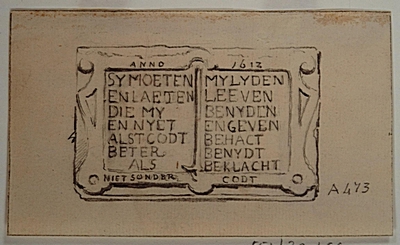 ANNO 1612
SY MOETEN MY LYDEN
EN LAETEN LEEVEN
DIE MY BENYDEN
EN NYET EN GEVEN
ALST GODT BEHACT
BETER BENYDT
ALS BEKLACHT
NIET SONDER GODT
A 473